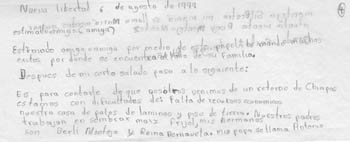 Nueva libertad 6 de agosto de 1999
estimado amigo (amiga)
Estimado amigo amiga por medio de este papelito mando muchos
exitos por donde se encuentra de mi Familia.
Despues de mi corto saludo paso a lo siguiente:
Es para contarle de que nosotros venimos de un retorno de Chiapas
estamos con dificultades de falta de recursos economicos
nuestra casa de palos de laminas y piso de tierra. Nuestros padres
trabajan en sembrar maiz Frijol mis Hermanas
son y Reina mi papa se llama Antonio